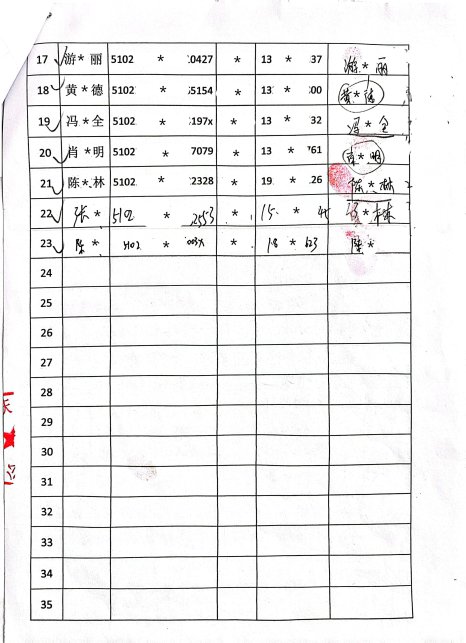 17 游*丽 5102 * 0427 * 13 * 37 游*丽
18 黄*德 5102 * 5154 * 13 * 00 黄*德
19 冯*全 5102 * 197x * 13 * 32 冯*全
20 肖*明 5102 * 7079 * 13 * 761 肖*明
21 陈*林 5102 * 2328 * 19 * 26 陈*林
22 张* 5102 * 2553 * 15 * 45
23 陈* 5102 * 003x * 18 * 623 陈*
24
25
26
27
28
29
30
31
32
33
34
35